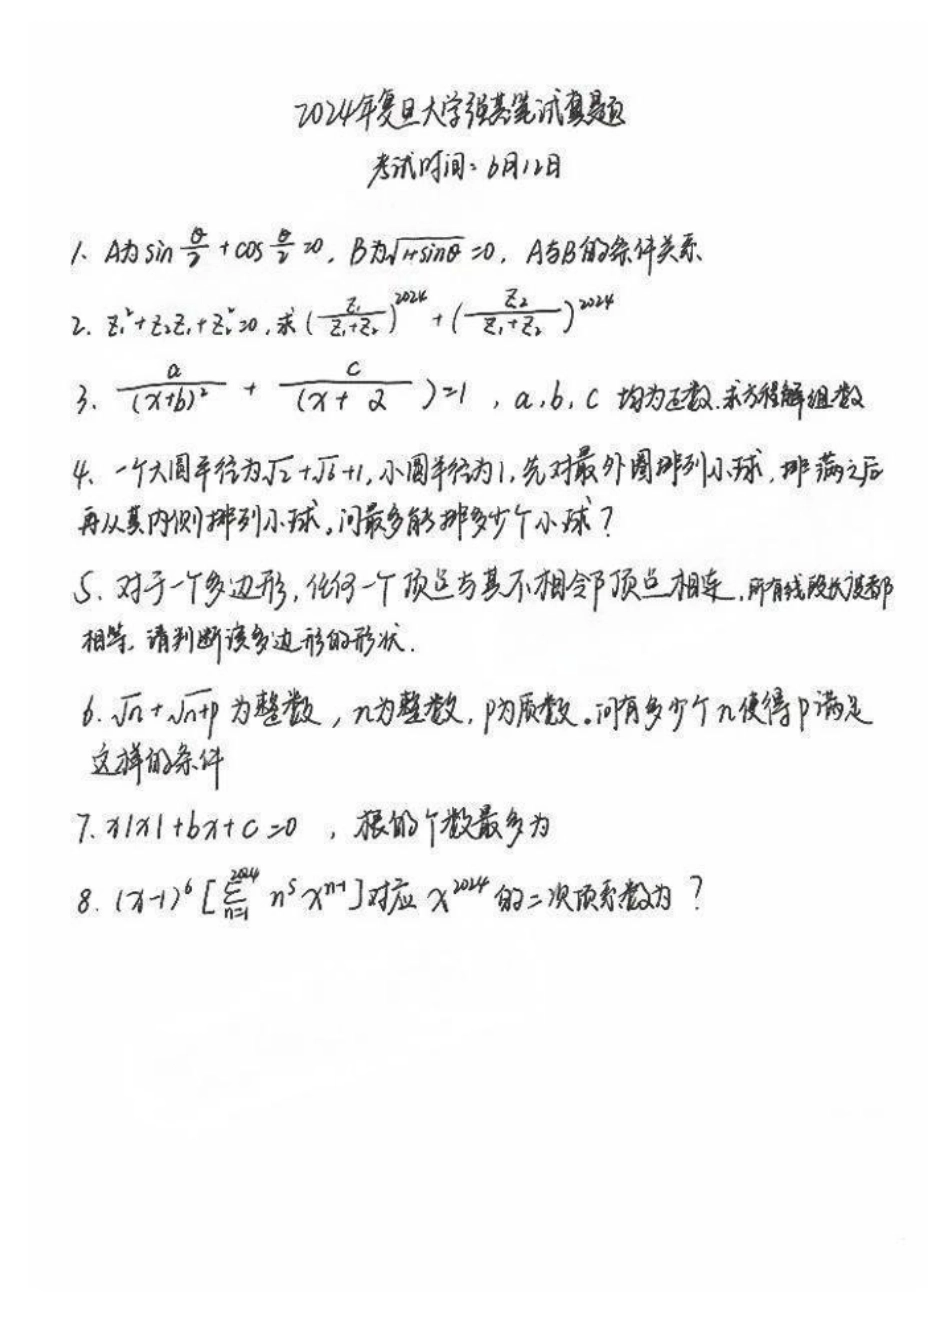 2024年复旦大学强基笔试真题
考试时间：6月12日
1、A为sin θ/2 + cos θ/2 =0，B为√1+sinθ =0，A与B的条件关系
2. z₁²+z₂z₁+z₂²=0，求(z₁/(z₁+z₂))^2024 + (z₂/(z₁+z₂))^2024
3. a/(x+b)² + c/(x+2)=1，a,b,c 均为正数.求方程解组数
4、一个大圆半径为√2+√6+1,小圆半径为1,先对最外圈排列小球，排满之后
再从其内侧排列小球。问最多能排多少个小球？
5、对于一个多边形,任何一个顶点与其不相邻顶点相连,所有线段长度都
相等,请判断该多边形的形状.
6.√n+√n+p 为整数，n为整数，p为质数。问有多少个n使得p满足
这样的条件
7. x|x|+bx+c=0 ，根的个数最多为
8. (x-1)⁶[∑_{n=1}^{2024} n⁵xⁿ⁻¹]对应 x²⁰²⁴ 的二次项系数为？